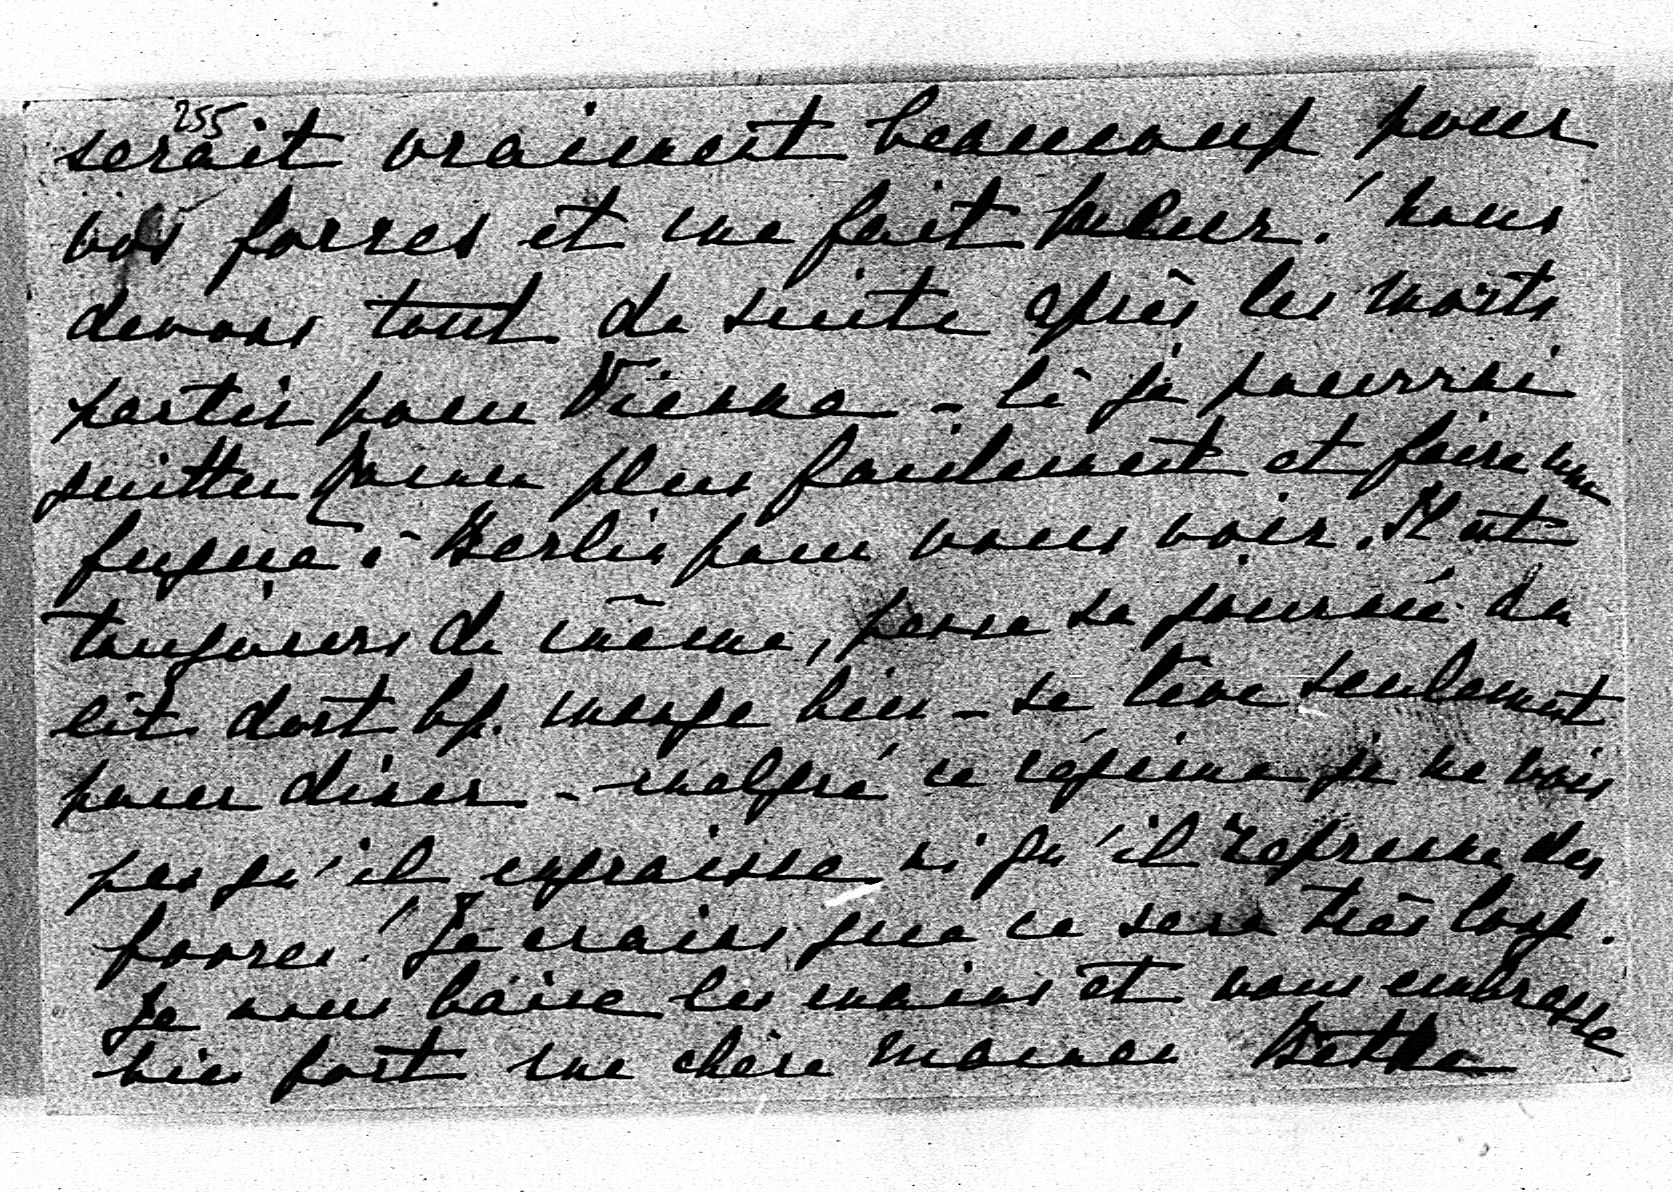 255
serait vraiment beaucoup pour
vos forces et me fait peur! nous
devons tout de suite après les morts
partir pour Vienne - si je pourrai
quitter plus facilement et faire une
fugue à Berlin pour vous voir. Il est
toujours de même, passe sa journée au
lit dort bp. mange bien - se lève seulement
pour dîner - malgré ce régime je ne vois
pas qu'il engraisse ni qu'il reprenne des
forces! Je crains que ce sera très long.
Je vous baise les mains et vous embrasse
bien fort ma chère maman